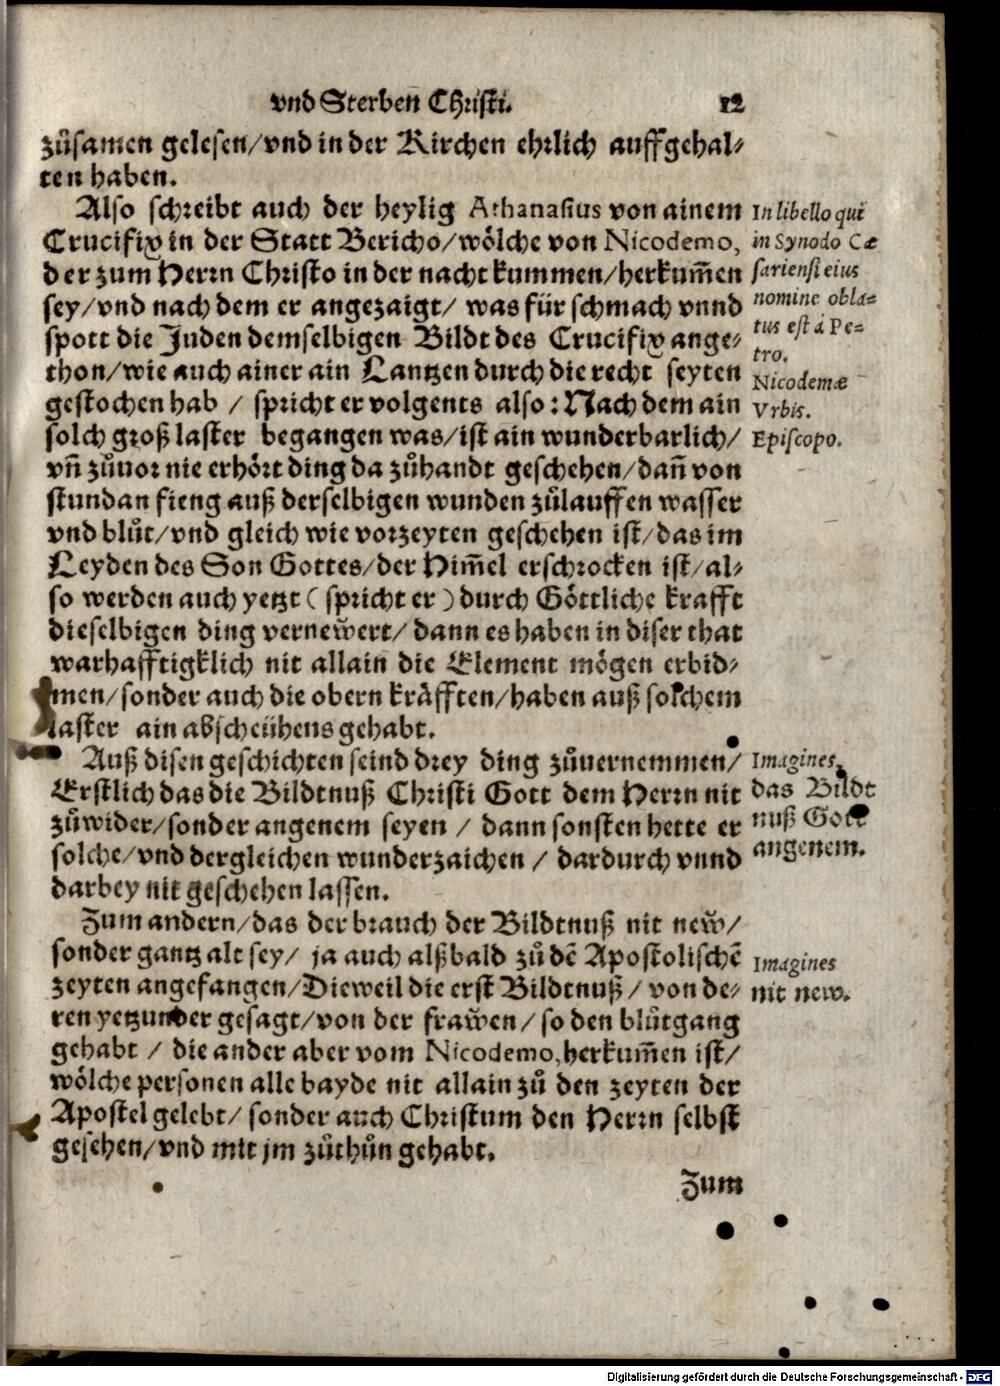 vnd Sterben Christi. 12
zůsamen gelesen/vnd in der Kirchen ehrlich auffgehal-
ten haben.
Also schreibt auch der heylig Athanasius von ainem
Crucifix in der Statt Bericho/wölche von Nicodemo,
der zum Herrn Christo in der nacht kummen/herkum̃en
sey/vnd nach dem er angezaigt/ was für schmach vnnd
spott die Juden demselbigen Bildt des Crucifix ange-
thon/wie auch ainer ain Lantzen durch die recht seyten
gestochen hab / spricht er volgents also: Nach dem ain
solch groß laster begangen was/ist ain wunderbarlich/
vñ zůuor nie erhört ding da zůhandt geschehen/dañ von
stundan fieng auß derselbigen wunden zůlauffen wasser
vnd blůt/vnd gleich wie vorzeyten geschehen ist/das im
Leyden des Son Gottes/der Him̃el erschrocken ist/al-
so werden auch yetzt ( spricht er ) durch Göttliche krafft
dieselbigen ding vernewert/ dann es haben in diser that
warhafftigklich nit allain die Element mögen erbid-
men/sonder auch die obern kräfften/haben auß solchem
laster ain abscheühens gehabt.
In libello qui
in Synodo Cæ
sariensi eius
nomine obla-
tus est à Pe-
tro.
Nicodemæ
Vrbis.
Episcopo.
Auß disen geschichten seind drey ding zůuernemmen/
Erstlich das die Bildtnuß Christi Gott dem Herrn nit
zůwider/sonder angenem seyen / dann sonsten hette er
solche/vnd dergleichen wunderzaichen / dardurch vnnd
darbey nit geschehen lassen.
Imagines,
das Bildt
nuß Gott
angenem.
Zum andern/das der brauch der Bildtnuß nit new/
sonder gantz alt sey/ ja auch alßbald zů dẽ Apostolischẽ
zeyten angefangen/Dieweil die erst Bildtnuß / von de-
ren yetzunder gesagt/von der frawen / so den blůtgang
gehabt / die ander aber vom Nicodemo, herkum̃en ist/
wölche personen alle bayde nit allain zů den zeyten der
Apostel gelebt/ sonder auch Christum den Herrn selbst
gesehen/vnd mit jm zůthůn gehabt.
Imagines
nit new.
Zum
Digitalisierung gefördert durch die Deutsche Forschungsgemeinschaft - DFG